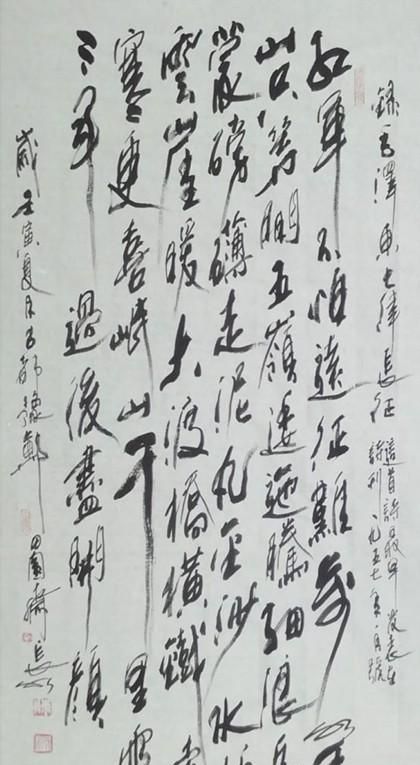 錄毛澤東七律長征
這首詩最早發表在
詩刊一九五七年一月號
紅軍不怕遠征難萬水
山只等閑五嶺逶迤騰細浪烏
蒙磅礴走泥丸金沙水拍
雲崖暖大渡橋橫鐵索
寒更喜岷山千里雪
三軍過後盡開顏
歲壬寅夏月古都豫鄭田園齋